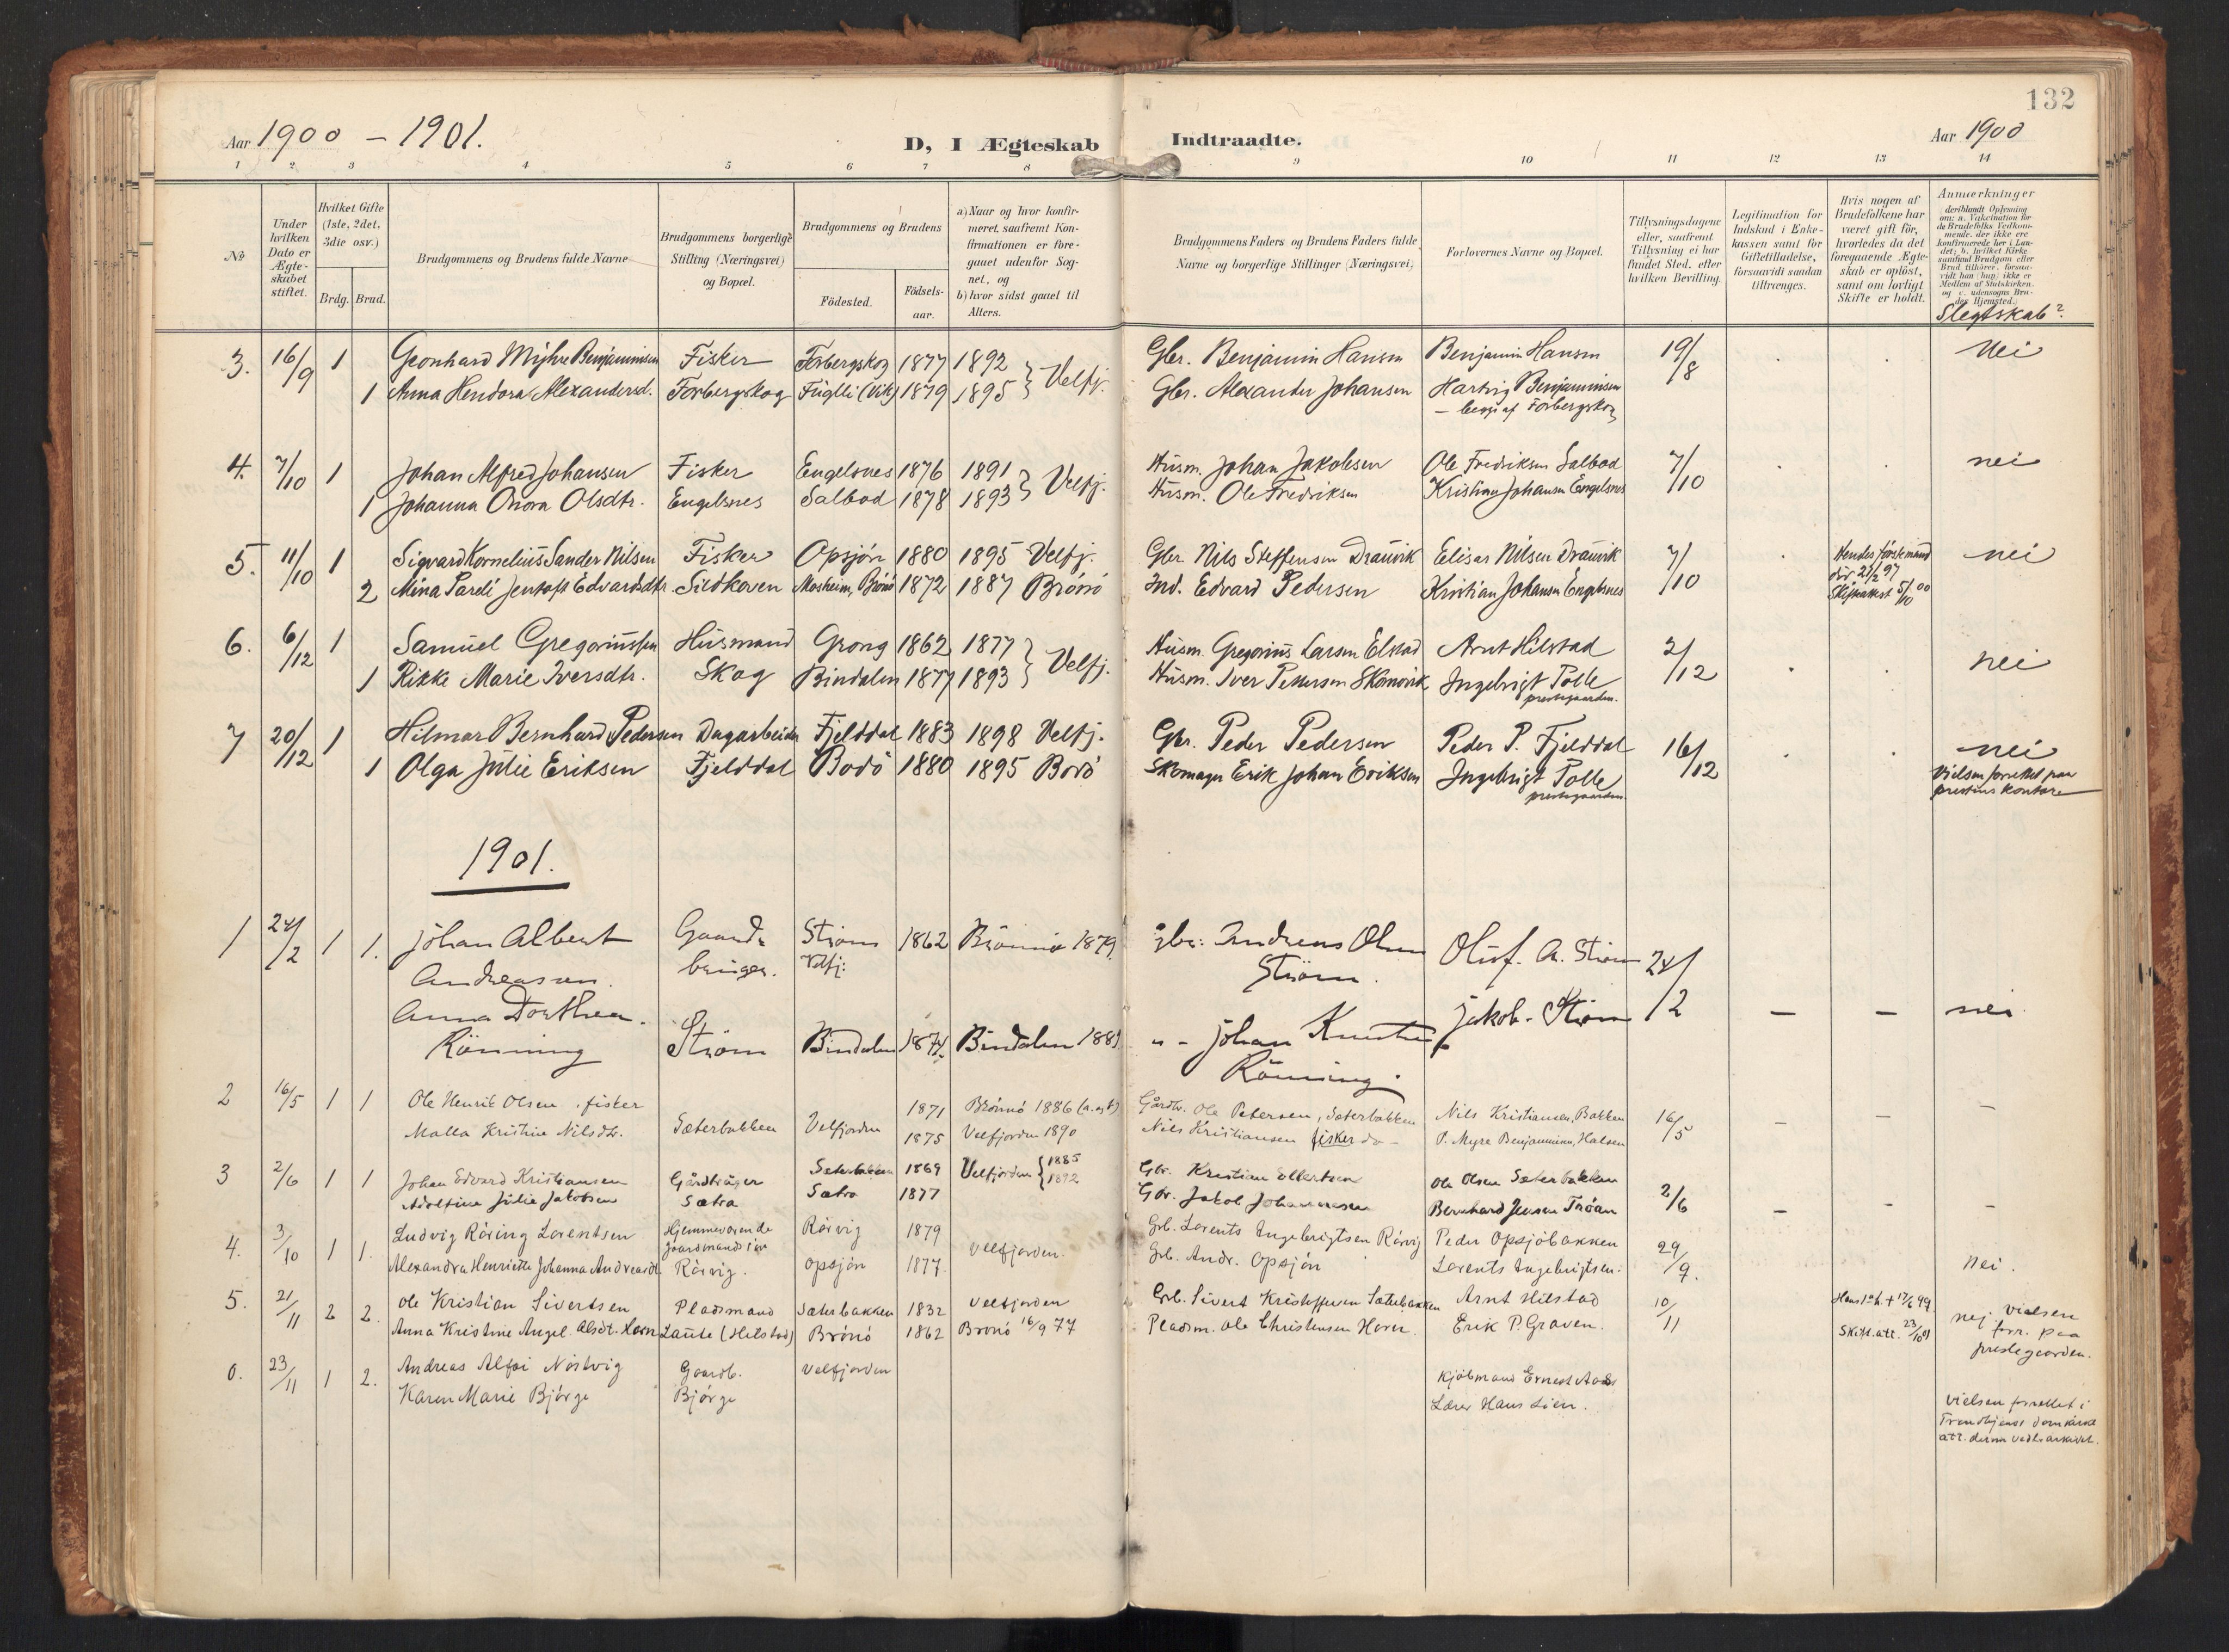 132
Aar 1900 - 1901.
D, I Ægteskab Indtraadte.
Aar 1900
1 2 3 4 5 6 7 8 9 10 11 12 13 14
No
Under hvilken Dato er Ægteskabet stiftet.
Hvilket Gifte (1ste, 2det, 3die osv.)
Brdg. Brud.
Brudgommens og Brudens fulde Navne
Brudgommens borgerlige Stilling (Næringsvei) og Bopæl.
Brudgommens og Brudens
Födested.
Födselsaar.
a) Naar og hvor konfirmeret, saafremt Konfirmationen er foregaaet udenfor Sognet, og
b) hvor sidst gaaet til Alters.
Brudgommens Faders og Brudens Faders fulde Navne og borgerlige Stillinger (Næringsvei)
Forlovernes Navne og Bopæl.
Tillysningsdagene eller, saafremt Tillysning ei har fundet Sted, efter hvilken Bevilling.
Legitimation for Indskud i Enkekassen samt for Giftetilladelse, forsaavidt saadan tiltrænges.
Hvis nogen af Brudefolkene har været gift för, hvorledes da det foregaaende Ægteskab er oplöst, samt om lovligt Skifte er holdt.
Anmærkninger
Slegtskab?
3. 16/9 1 Mÿhre Benjaminsen Fisker Forbergskog 1877 1892 } Velfj. Gbr. Benjamin Hansen Benjamin Hansen 19/8 . . Nei
1 Anna Hendora Alexandersd. Forbergskog (Vik) 1879 1895 Gbr. Alexander Johansen Hartvig Benjaminsen
Forbergskog
4. 7/10 1 Johan Alfred Johansen Fisker Engelsnes 1876 1891 } Velfj. Husm. Johan Jakobsen Ole Fredriksen Salbod 7/10 . . nei
1 Johanna Olsdtr. Engelsnes Salbod 1878 1893 Husm. Ole Fredriksen Kristian Johansen Engelsnes
5. 11/10 1 Sigvard Kornelius Sander Nilsen Fisker Opsjön 1880 1895 Velfj. Gbr Nils Steffensen Drauvik Elisar Nilsen Drauvik 7/10 . Hendes förstemand nei
död 21/2 97
2 Mina Jentoft Edvardsdtr. Sildhoven Mosheim, Brönö 1872 1887 Brönö Ind. Edvard Pedersen Kristian Johansen Engelsnes Skifteattest 5/10 00
6. 6/12 1 Samuel Gregoriussen Husmand Grong 1862 1877 } Velfj. Husm. Gregorius Larsen Elstad Arnt Hilstad 2/12 . . nei
1 Rikke Marie Iversdtr. Skog Bindalen 1877 1893 Husm. Iver Pettersen Ingebrigt Tolle
prestegaarden.
7 20/12 1 Hilmar Bernhard Pedersen Dagarbeider Fjelddal 1883 1898 Velfj. Gbr. Peder Pedersen Peder P. Fjelddal 16/12 . . nei
1 Olga Julie Eriksen Fjelddal Bodö 1880 1895 Bodö Skomager Erik Johan Eriksen Ingebrigt Tolle Vielsen forrettet paa
prestegaarden. prestens kontor
1901.
1 24/2 1 1. Johan Albert Gaard- Ström 1862 Brönnö 1879 gbr: Andreas Olsen Oluf. A. Ström 24/2
Andreasen. bruger. Velfj: Ström.
Anna Dorthea Jakob. Ström - - nei
Rönning Ström Bindalen 1874. Bindalen 1889 " - Johan
Rönning.
2 16/5 1 1 Ole Henrik Olsen . fisker 1871 Brönnö 1886 Gårdbr. Ole Petersen, Sæterbakken Nils Kristiansen, Bakken 16/5 - - -
Malla Kristine Nilsdtr. Sæterbakken Velfjorden 1875 Velfjorden 1890 Nils Kristiansen fisker do - P. Myre Benjaminsen, Halsen
3 2/6 1 1 Johan Edvard Kristiansen Gårdbruger Sæterbakken 1869 Velfjorden { 1885 Gbr. Kristian Ellertsen Ole Olsen Sæterbakken 2/6 - - -
Adolfine Julie Jakobsen Sætra Sætra 1877 1892 Gbr. Jakob Johannesen Bernhard Jensen Tröan
4. 3/10 1 1. Ludvig Röring Lorentsen Hjemmeværende Rörvig 1879 Velfjorden. Grb. Lorents Ingebrigtsen Rörvig Peder Opsjöbakken 29/9. nei.
gaardmands
Alexandra Henriette Johanna Andreasdt. Rörvig. Opsjön 1877. Grb. Andr. Opsjön Lorents Ingebrigtsen.
5. 21/11 2 2. Ole Kristian Sivertsen Pladsmand Sæterbakken 1832 Velfjorden Grb. Sivert Kristoffersen Sæterbakken Arnt Hilstad 10/11 Hans 1ste h. + 17/6 99. nej vielsen
Anna Kristine Angel. Olsdt. Horn Laute (Hilstad) Brönö 1862 Brönö 16/9 77 Pladsm. Ole Christensen Erik P. Graven. Skift. att. 23/10 01 forr. paa
prestegaarden.
6. 23/11 1 2. Andreas Nöstvig Gaardb. Velfjorden Kjöbmand Ernest
Karen Marie Björge Björge Lærer Hans Lien. Vielsen forrettet i
Trondhjems domkirke
att. derom vedl. arkivet.